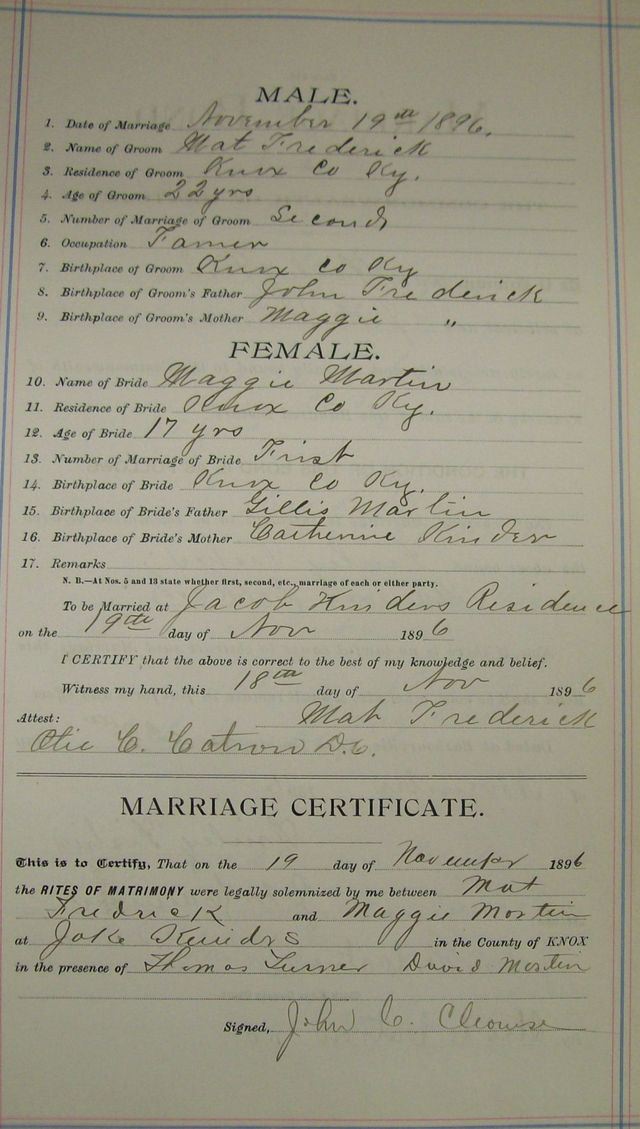 MALE.
1. Date of Marriage November 19th 1896.
2. Name of Groom Mat Frederick
3. Residence of Groom Knox Co Ky.
4. Age of Groom 22 yrs
5. Number of Marriage of Groom Second
6. Occupation Famer
7. Birthplace of Groom Knox Co Ky
8. Birthplace of Groom's Father John Frederick
9. Birthplace of Groom's Mother Maggie "
FEMALE.
10. Name of Bride Maggie Martin
11. Residence of Bride Knox Co Ky.
12. Age of Bride 17 yrs
13. Number of Marriage of Bride Frist
14. Birthplace of Bride Knox Co Ky.
15. Birthplace of Bride's Father Gillis Martin
16. Birthplace of Bride's Mother Catherine Kinder
17. Remarks
N. B.—At Nos. 5 and 13 state whether first, second, etc., marriage of each or either party.
To be Married at Jacob Kinders Residence
on the 19th day of Nov 1896
I CERTIFY that the above is correct to the best of my knowledge and belief.
Witness my hand, this 18th day of Nov 1896
Mat Frederick
Attest:
C. Catron D.C.
MARRIAGE CERTIFICATE.
This is to Certify, That on the 19 day of November 1896
the RITES OF MATRIMONY were legally solemnized by me between Mat
Fredrick and Maggie Mortin
at Jake in the County of KNOX
in the presence of Thomas Turner David Mortin
Signed, John C.